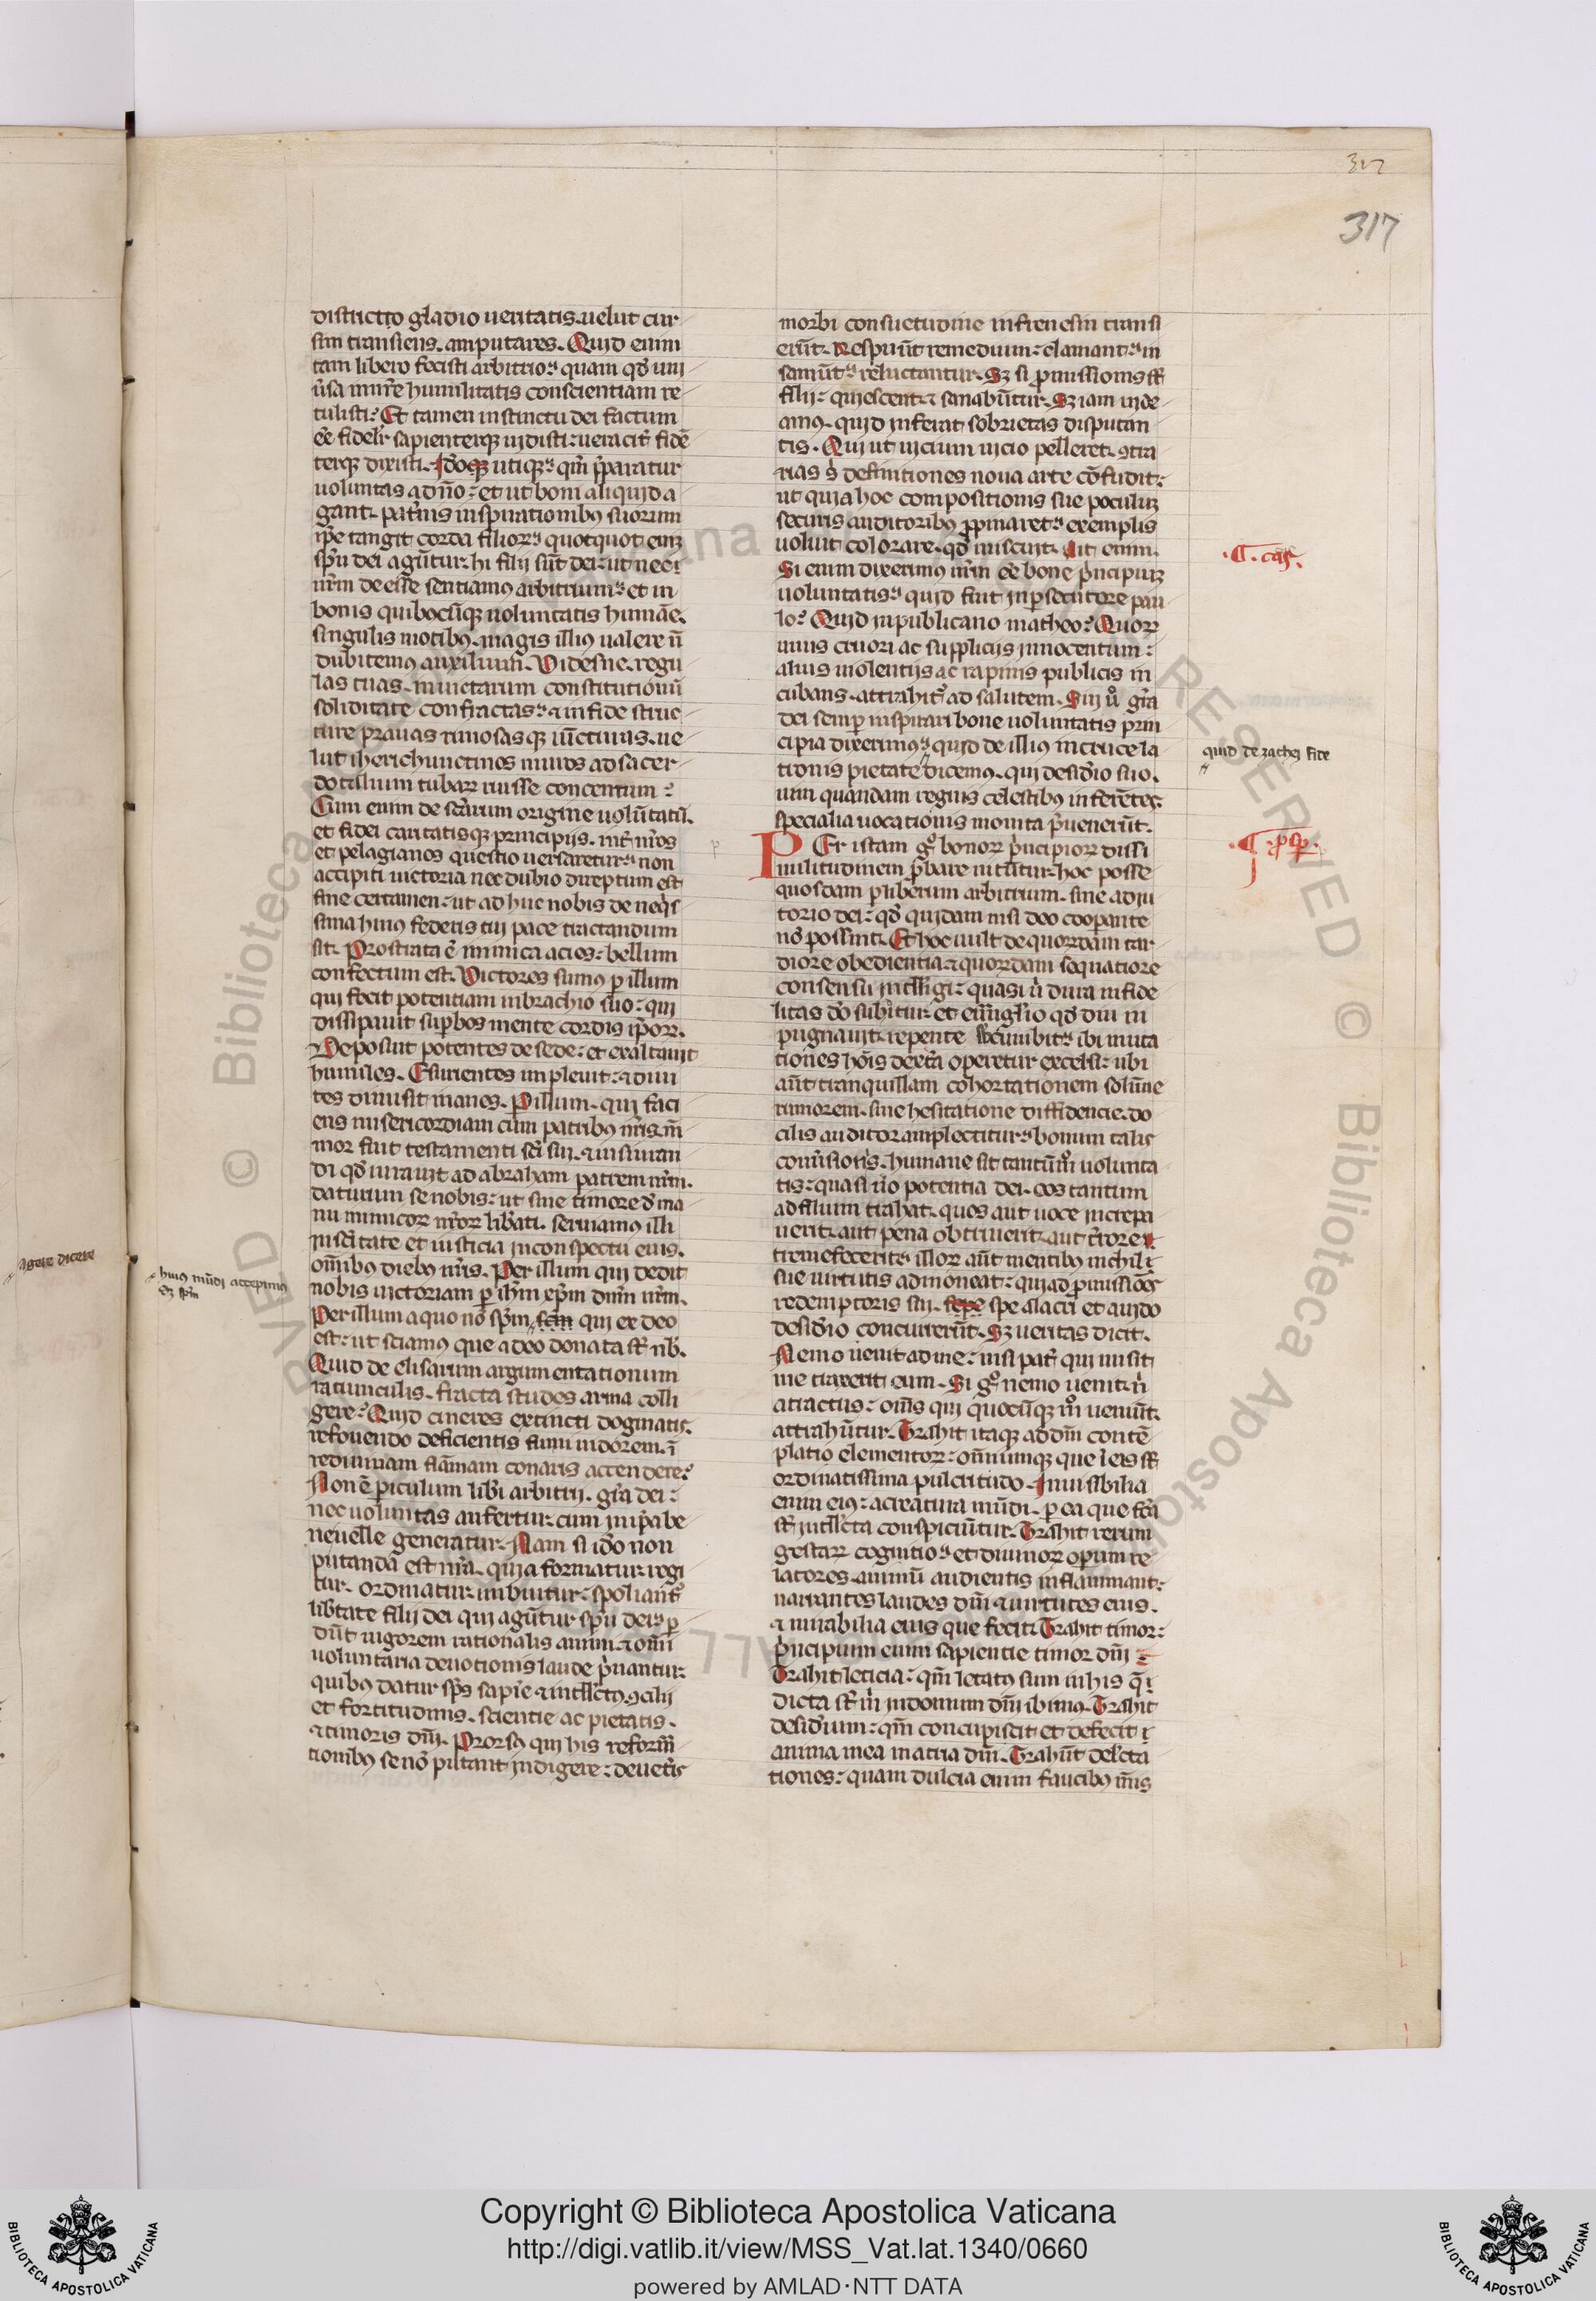 317
317
districto gladio ueritatis. uelut cur
sim transiens. amputares. Quid enim
tam libero fecisti arbitrio? quam qď uni
u̾sa inuir̄e humilitatis conscientiam re
tulisti? Et tamen instinctu dei factum
eē fideli sapienterqꝫ uidisti: ueracit̾ fidē
terqꝫ dixisti. Iďo utiqꝫ: qm̄ p̄paratur
uoluntas a dn̄o: et ut boni aliquid a
gant. pat̾nis inspirationibꝰ suorum
ip̄e tangit corda filioꝝ: quotquot enī
sp̄u dei agūtur: hi filij sūt dei: ut nec
nr̄m deesse sentiamus arbitrium: et in
bonis quibuscūqꝫ uoluntatis humāe.
singulis motibꝰ. magis illiꝰ ualere n̄
dubitemꝰ auxilium. Videsne. regu
las tuas. inuictarum constitutionū
soliditate confractas: ⁊ in fide struc
ture prauas rimosasqꝫ iūcturas. ue
lut iherichunctinos muros ad sacer
dotalium tubaꝝ ruisse concentum?
Cum enim de sc̄arum origine uolūtatū.
et fidei caritatisqꝫ principijs. int̾ nr̄os
et pelagianos questio uersaretur: non
accipiti uictoria nec dubio direptum est
fine certamen: ut adhuc nobis de neq̄s
sima huiꝰ federis tui pace tractandum
sit. Prostrata ē inimica acies: bellum
confectum est. Victores sumꝰ ꝑ illum
qui fecit potentiam in brachio suo: qui
dissipauit suꝑbos mente cordis ip̄oꝝ.
Deposuit potentes de sede: et exaltauit
humiles. Esurientes impleuit: ⁊ diui
tes dimisit inanes. Ꝑ illum. qui faci
ens misericordiam cum patribꝰ nr̄is. m̄
mor fuit testamenti sc̄i sui. ⁊ iusiuran
di qď iurauit ad abraham patrem nr̄m.
daturum se nobis: ut sine timore ď ma
nu inimicoꝝ nr̄oꝝ lib̾ati. seruiamꝰ illi
in sc̄itate et iusticia in conspectu eius.
om̄ibꝰ diebꝰ nr̄is. Per illum qui dedit
nobis uictoriam ꝑ ih̄m xp̄m dn̄m nr̄m.
Per illum a quo nō sp̄m qui ex deo
est: ut sciamꝰ que a deo donata sꝉ nb̾.
Quid de elisarum argumentationum
ratiunculis. fracta studes arma colli
gere? Quid cineres extincti dogmatis.
refouendo deficientis fumi nidorem. ī
rediuiuam flāmam conaris accendere?
Non ē ꝑiculum lib̾i arbitrij. gr̄a dei:
nec uoluntas aufertur: cum in ip̄a be
neuelle generatur. Nam si iďo non
putanda est nr̄a. quia formatur: regi
tur. ordinatur: imbuitur: spoliant̾
lib̾tate filij dei qui agūtur sp̄u dei: ꝑ
dūt uigorem rationalis animi: ⁊ om̄i
uoluntaria deuotionis laude p̾uantur:
quibꝰ datur sp̄s sapīe ⁊ intll̄ctꝰ ꝯsilij
et fortitudinis. scientie ac pietatis.
⁊ timoris dn̄i. Prorsꝰ qui his reform̄
tionibꝰ se nō putant indigere: de uet̾is
agere dicere
huiꝰ mūdi accepimus
sꝫ sp̄m
morbi consuetudine in frenesin transi
erūt. Respuūt remedium: clamant: in
saniūt: reluctantur. Sꝫ si ꝓmissionis sꝉ
filij: quiescent ⁊ sanabūtur. Sꝫ iam uide
amꝰ. quid inferat sobrietas disputan
tis. Qui ut uicium uicio pelleret. ꝯtra
rias s̾ definitiones noua arte cōfudit:
ut quia hoc compositionis sue poculuꝫ
securis auditoribꝰ ꝓpinaret: exemplis
uoluit colorare. qď miscuit. Ait enim.
Si enim dixerimꝰ nr̄m eē bone p̾ncipiuꝫ
uoluntatis: quid fuit in ꝑsecutore pau
lo? Quid in publicano matheo? Quoꝝ
unus cruori ac supplicijs innocentum:
alius uiolentijs ac rapinis publicis in
cubans. attrahit̾ ad salutem. Sin u̾o gr̄a
dei semꝑ inspirari bone uoluntatis prin
cipia dixerimꝰ: quid de illius in cruce la
tronis pietate dicemꝰ. qui desid̾io suo.
uim quandam regnis celestibꝰ inferētes:
specialia uocationis monita p̾uenerūt.
Per istam gͦ bonoꝝ p̾ncipioꝝ dissi
militudinem ꝓbare nitūtur: hoc posse
quosdam ꝑ liberum arbitrium. sine adiu
torio dei: qď quidam nisi deo cooꝑante
nō possint. Et hoc uult de quoꝝdam tar
diore obedientia: ⁊ quoꝝdam sequatiore
consensu intll̄igi: quasi u̾ dura infide
litas dō subi̾tur: et euāgl̄io qď diu in
pugnauit. repente: ibi muta
tiones hōīs dext̾a operetur excelsi: ubi
aūt tranquillam cohortationem solūne
rumorem. sine hesitatione diffidencie. do
cilis auditor amplectitur: bonum talis
conu̾siōis. humane sit tantūm̊ uolunta
tis: quasi u̾o potentia dei. eos tantum
ad filium trahat. quos aut uoce increpa
uerit. aut pena obtriuerit. aut t̾rore
tremefecerit: illoꝝ aūt mentibꝰ nichil
sue uirtutis admoneat: qui ad ꝓmissiōes
redemptoris sui. spe alacri et auido
desid̾io concurrerūt. Sꝫ ueritas dicit.
Nemo uenit ad me: nisi pat̾ qui misit
me traxerit eum. Si gͦ nemo uenit. n̾
atractus: om̄s qui quocūqꝫ m̊ ueniūt.
attrahūtur. Trahit itaqꝫ ad dm̄ contē
platio elementoꝝ: om̄iumqꝫ que ī eis sꝉ
ordinatissima pulcritudo. Inuisibilia
enim eiꝰ: a creatura mūdi. ꝑ ea que fc̄a
sꝉ intll̄cta conspiciūtur. Trahit rerum
gestaꝝ cognitio: et diuinoꝝ oꝑum re
latores. animū audientis inflammant:
narrantes laudes dn̄i ⁊ uirtutes eius.
⁊ mirabilia eius que fecit. Trahit timor:
p̾ncipium enim sapientie timor dn̄i
Trahit leticia: qm̄ letatꝰ sum in his q̄
dicta sꝉ m̾ in domum dn̄i ibimꝰ. Trahit
desid̾ium: qm̄ concupiscit et defecit
anima mea in atria dn̄i. Trahūt delc̄ta
tiones: quam dulcia enim faucibꝰ m̄is
¶. cas̄.
quid de zachei fide
¶. ꝓsꝑ.
Copyright © Biblioteca Apostolica Vaticana
http://digi.vatlib.it/view/MSS_Vat.lat.1340/0660
powered by AMLAD·NTT DATA
BIBLIOTECA APOSTOLICA VATICANA
BIBLIOTECA APOSTOLICA VATICANA